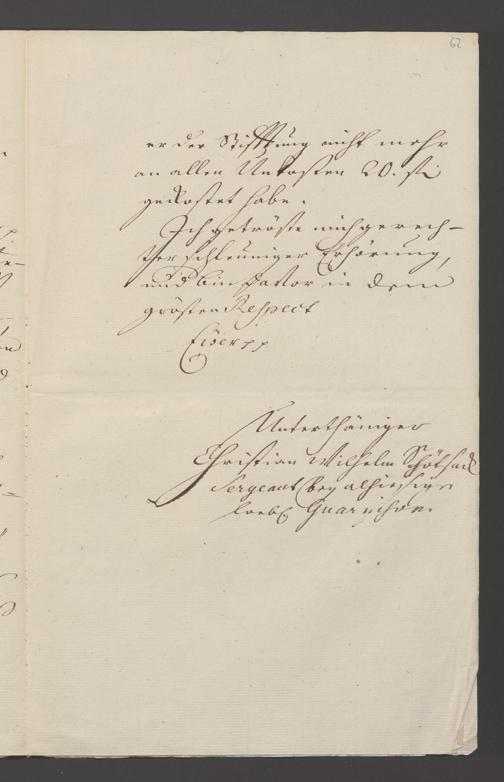 62
er der Stifftung nicht mehr
an allen Unkosten 20. fl
gekostet habe.
Ich getröste mich gerech-
ter schleuniger Erhörung,
und bin davor in dem
grösten Respect
Euer pp
Unterthäniger
Christian Wilhelm
Sergeant bey alhiesiger
loebl Guarnison.